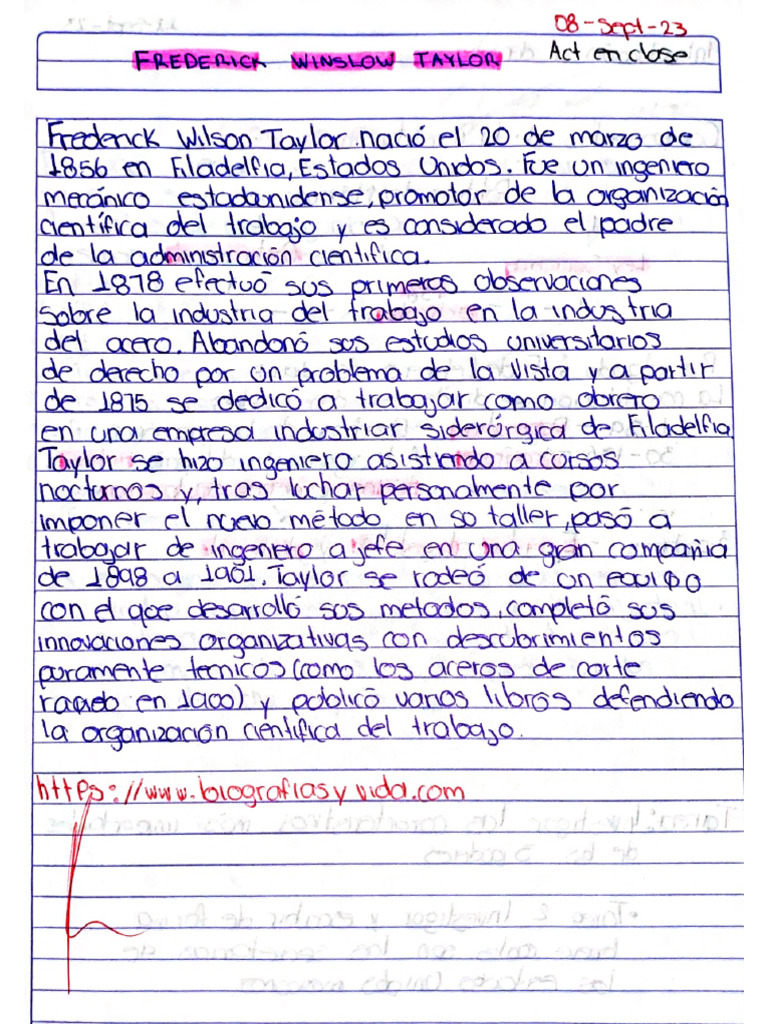 08-Sept-23
FREDERICK WINSLOW TAYLOR
Act en close
Frederick Wilson Taylor nació el 20 de marzo de
1856 en Filadelfia, Estados Unidos. Fue un ingeniero
mecánico estadounidense, promotor de la organización
científica del trabajo y es considerado el padre
de la administración científica.
En 1878 efectuó sus primeras observaciones
sobre la industria del trabajo en la industria
del acero. Abandonó sus estudios universitarios
de derecho por un problema de la vista y a partir
de 1875 se dedicó a trabajar como obrero
en una empresa industriar siderúrgica de Filadelfia
Taylor se hizo ingeniero asistiendo a cursos
nocturnos y, tras luchar personalmente por
imponer el nuevo método en so taller, pasó a
trabajar de ingenero a jefe en una gran compañia
de 1898 a 1901. Taylor se rodeó de un equipo
con el que desarrolló sus metodos, completó sus
innovaciones organizativas con descubrimientos
puramente tecnicos (como los aceros de corte
rapido en 1900) y publicó varios libros defendiendo
la organización científica del trabajo.
https://www.biografiasyvida.com